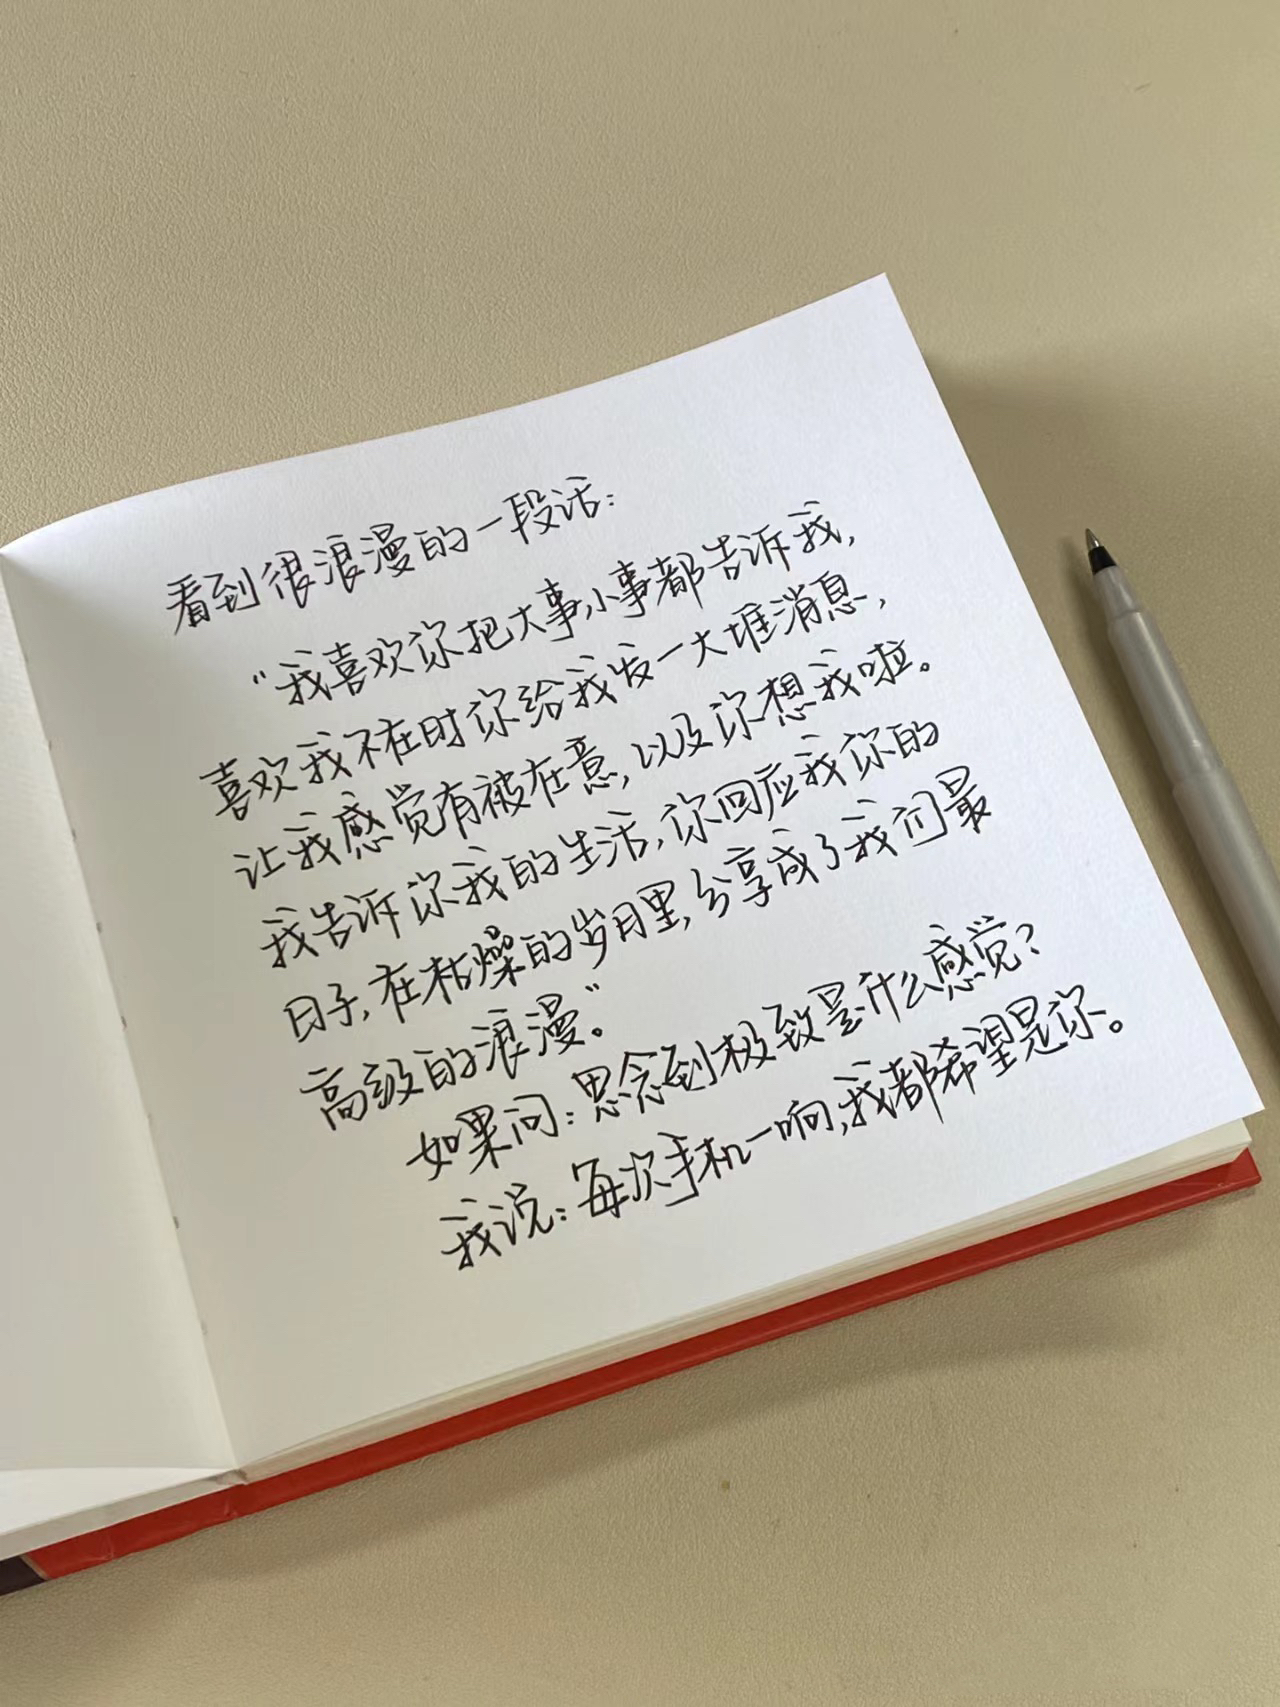 看到很浪漫的一段话：
“我喜欢你把大事小事都告诉我，
喜欢我不在时你给我发一大堆消息，
让我感觉有被在意，以及你想我啦。
我告诉你我的生活，你回应我你的
日子，在枯燥的岁月里，分享成了我们最
高级的浪漫。”
如果问：思念到极致是什么感觉？
我说：每次手机一响，我都希望是你。